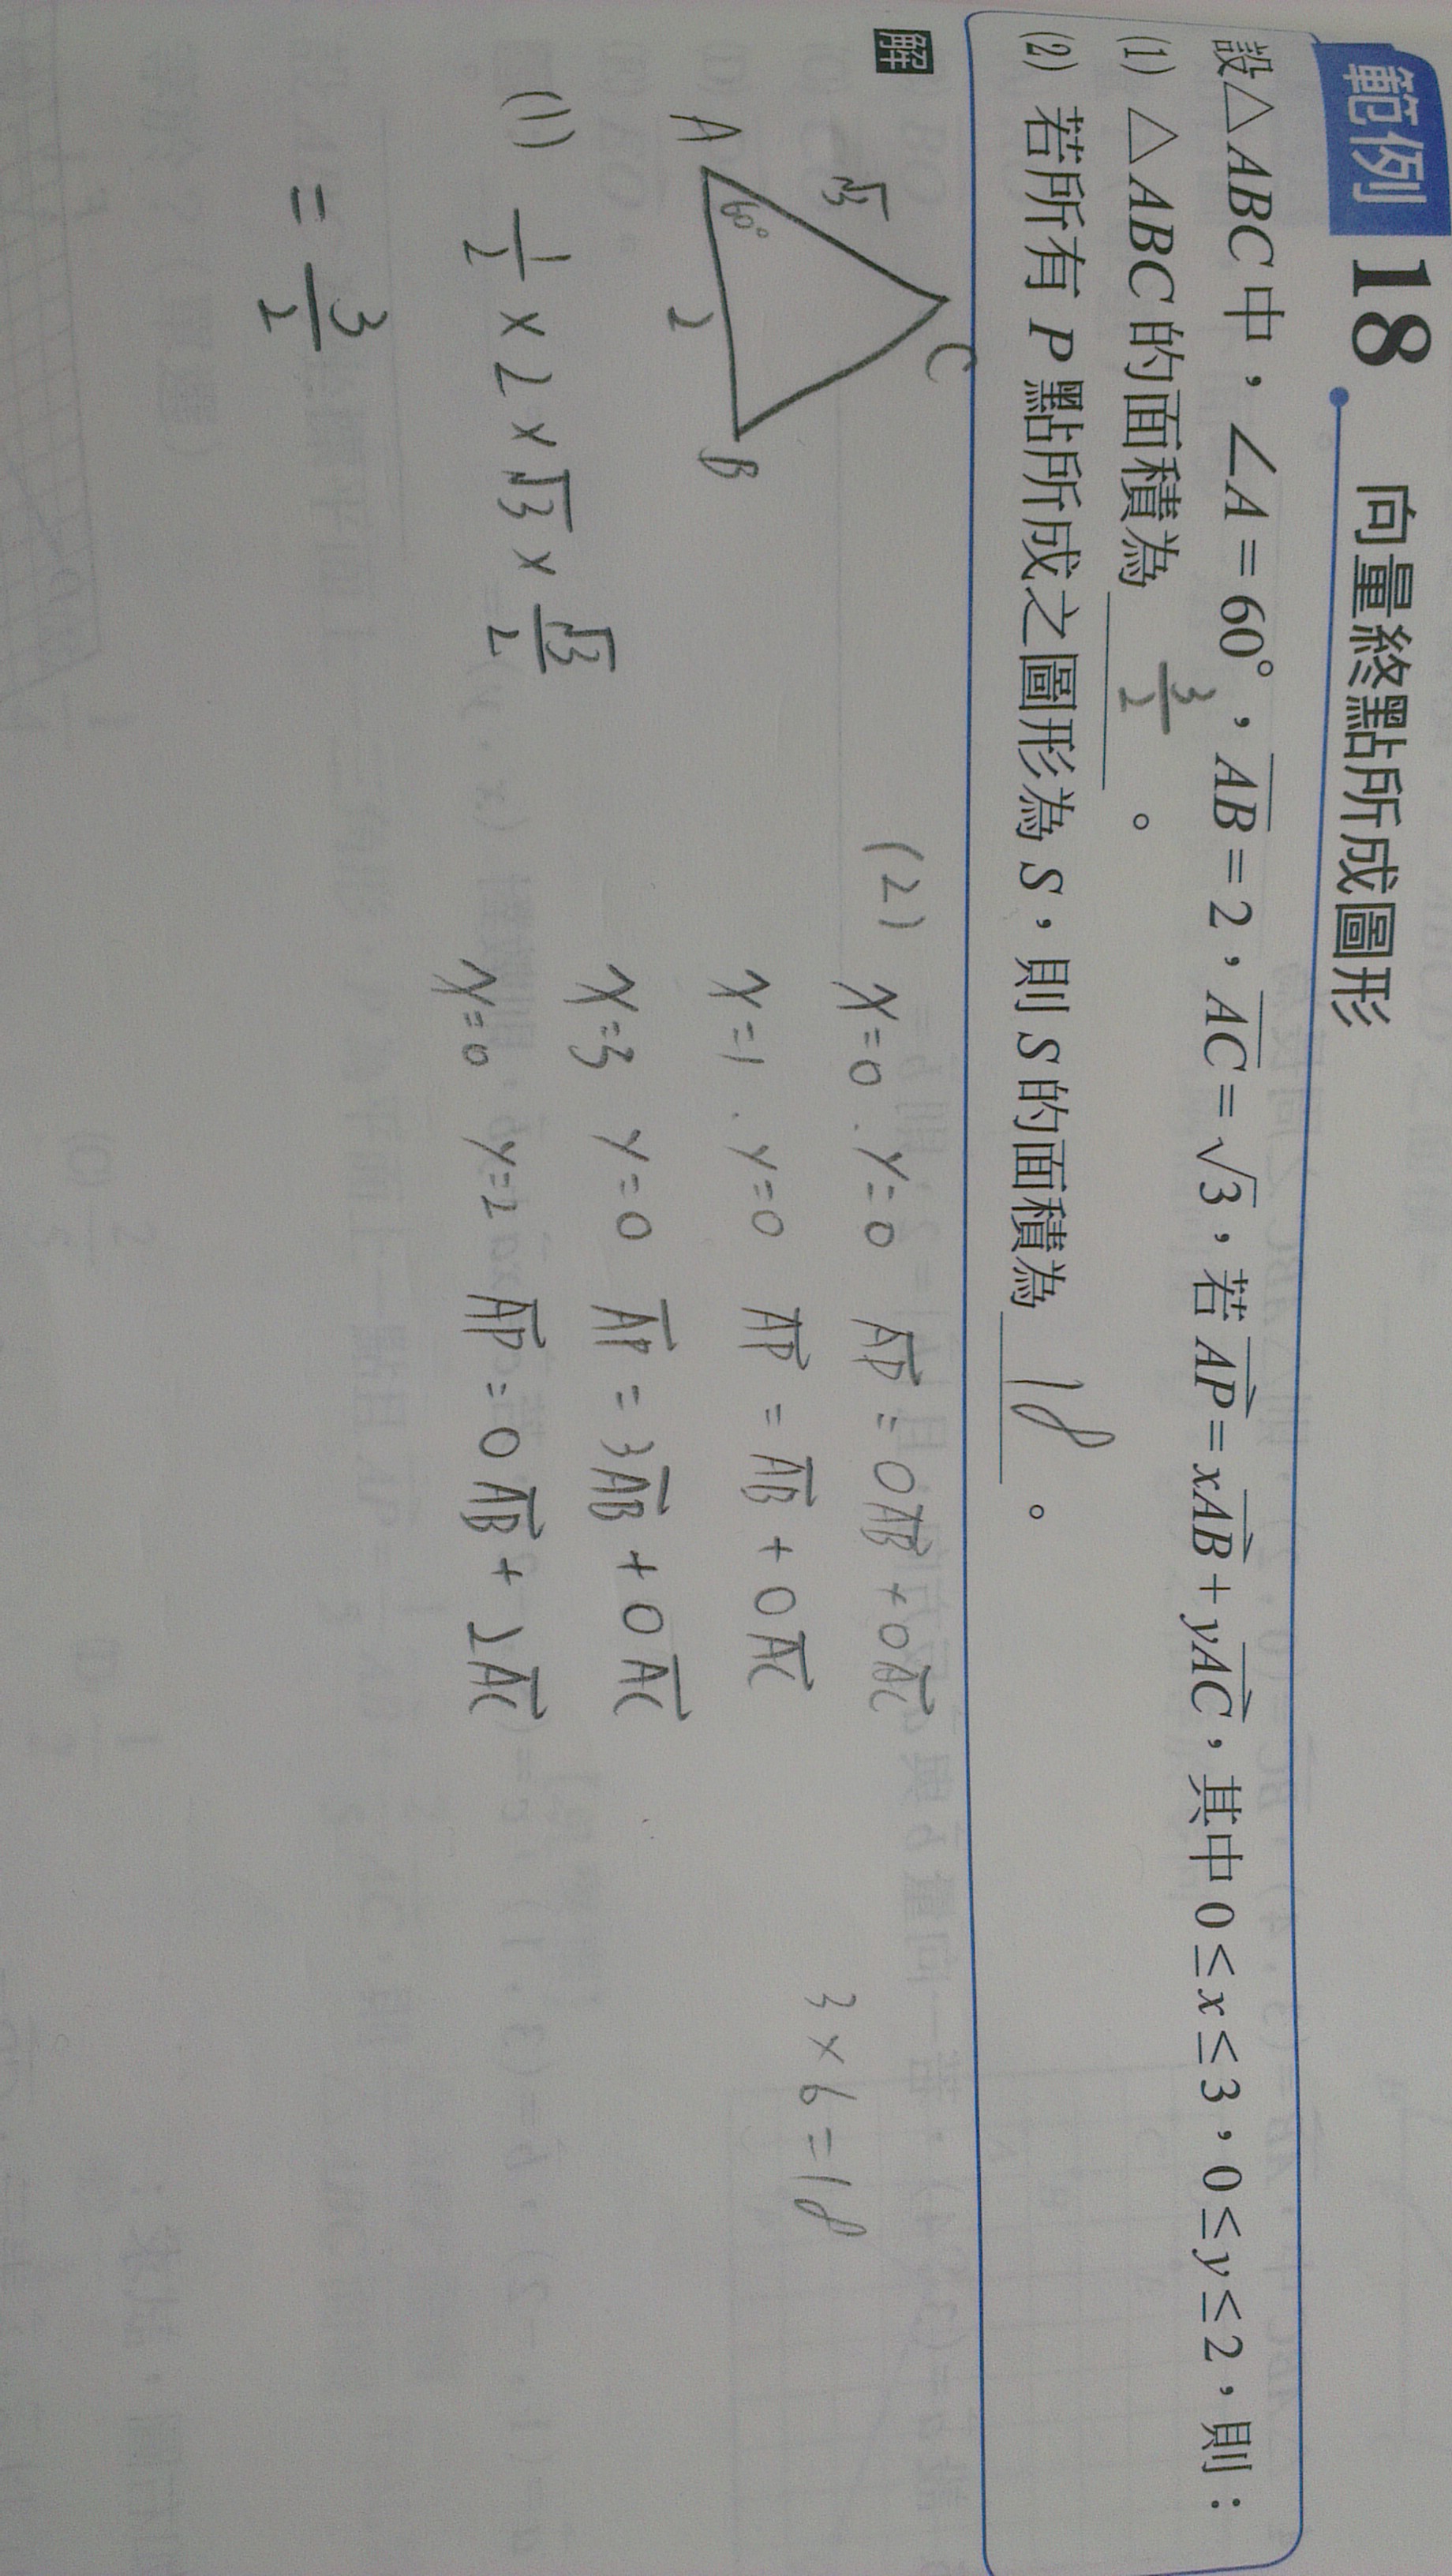 範例 18 向量終點所成圖形
設△ABC中，∠A=60°，AB=2，AC=√3，若AP=xAB+yAC，其中0≤x≤3，0≤y≤2，則：
(1) △ABC的面積為 3/2 。
(2) 若所有P點所成之圖形為S，則S的面積為 18 。
解
A √3 C
60°
2 B
(1) 1/2 × 2 × √3 × √3/2
= 3/2
(2) x=0 . y=0 AP = 0AB + 0AC
x=1 . y=0 AP = AB + 0AC
x=3 y=0 AP = 3AB + 0AC
x=0 y=2 AP = 0AB + 2AC
3×6=18